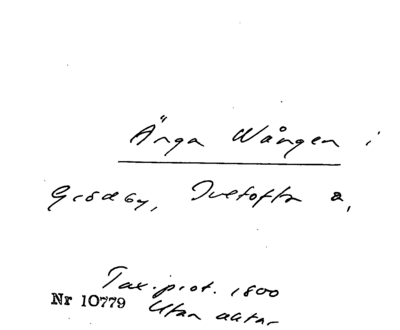 Änga Wången i
Grödby, Ivetofta s,
Tax.prot. 1800
Nr 10779 Utan aktnr